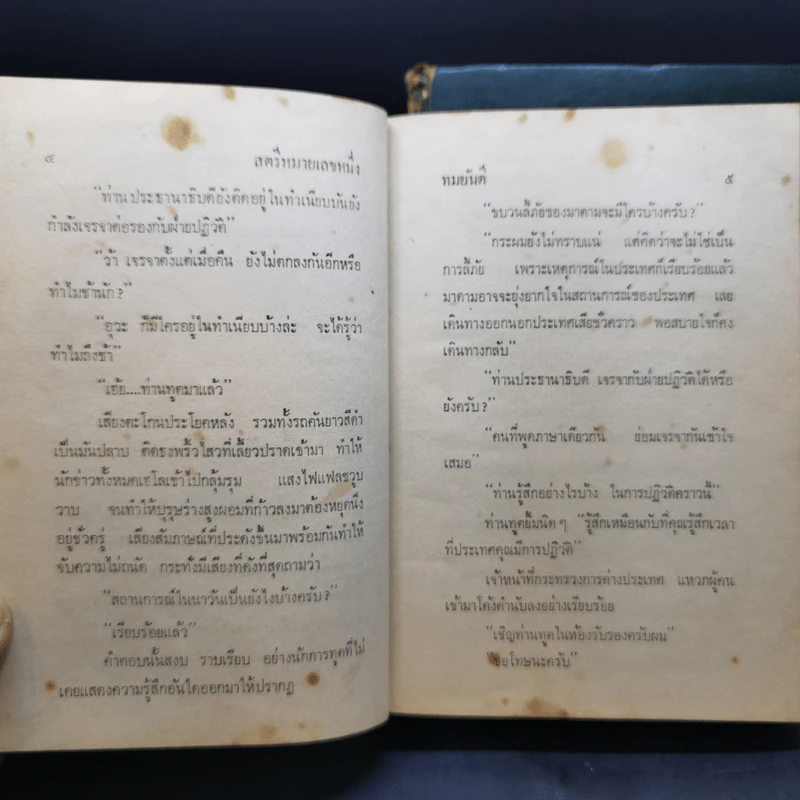 ๔ สตรีหมายเลขหนึ่ง
"ท่านประธานาธิบดียังติดอยู่ในทำเนียบบันยัง
กำลังเจรจาต่อรองกับฝ่ายปฏิวัติ"
"ว้า เจรจาตั้งแต่เมื่อคืน ยังไม่ตกลงกันอีกหรือ
ทำไมช้านัก?"
"อุวะ ก็มีใครอยู่ในทำเนียบบ้างล่ะ จะได้รู้ว่า
ทำไมถึงช้า"
"เฮ้ย....ท่านทูตมาแล้ว"
เสียงตะโกนประโยคหลัง รวมทั้งรถคันยาวสีดำ
เป็นมันปลาบ ติดธงพริ้วไสวที่เลี้ยวปราดเข้ามา ทำให้
นักข่าวทั้งหมดเฮโลเข้าไปกลุ้มรุม แสงไฟแฟลชวูบ
วาบ จนทำให้บุรุษร่างสูงผอมที่ก้าวลงมาต้องหยุดนิ่ง
อยู่ชั่วครู่ เสียงสัมภาษณ์ที่ประดังขึ้นมาพร้อมกันทำให้
จับความไม่ถนัด กระทั่งมีเสียงที่ดังที่สุดถามว่า
"สถานการณ์ในนาวันเป็นยังไงบ้างครับ?"
"เรียบร้อยแล้ว"
คำตอบนั้นสงบ ราบเรียบ อย่างนักการทูตที่ไม่
เคยแสดงความรู้สึกอันใดออกมาให้ปรากฏ
ทมยันตี ๕
"ขบวนลี้ภัยของมาดามจะมีใครบ้างครับ?"
"กระผมยังไม่ทราบแน่ แต่คิดว่าจะไม่ใช่เป็น
การลี้ภัย เพราะเหตุการณ์ในประเทศก็เรียบร้อยแล้ว
มาดามอาจจะยุ่งยากใจในสถานการณ์ของประเทศ เลย
เดินทางออกนอกประเทศเสียชั่วคราว พอสบายใจก็คง
เดินทางกลับ"
"ท่านประธานาธิบดี เจรจากับฝ่ายปฏิวัติได้หรือ
ยังครับ?"
"คนที่พูดภาษาเดียวกัน ย่อมเจรจากันเข้าใจ
เสมอ"
"ท่านรู้สึกอย่างไรบ้าง ในการปฏิวัติคราวนี้"
ท่านทูตยิ้มนิดๆ "รู้สึกเหมือนกับที่คุณรู้สึกเวลา
ที่ประเทศคุณมีการปฏิวัติ"
เจ้าหน้าที่กระทรวงการต่างประเทศ แหวกผู้คน
เข้ามาโค้งคำนับลงอย่างเรียบร้อย
"เชิญท่านทูตในห้องรับรองครับผม"
"ขอโทษนะครับ"